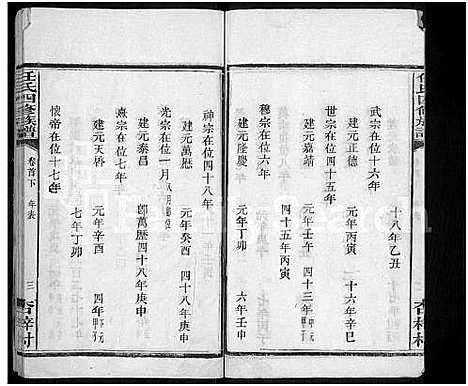 十八年乙丑
武宗在位十六年
建元正德 元年丙寅 十六年辛巳
世宗在位四十五年
建元嘉靖 元年壬午 四十三年甲子
四十五年丙寅
穆宗在位六年
建元隆慶 元年丁卯 六年壬申
神宗在位四十八年
建元萬歷 元年癸酉 四十八年庚申
光宗在位一月
建元泰昌 卽萬歷四十八年庚申
熹宗在位七年
建元天啓 元年辛酉 四年甲子
七年丁卯
懷帝在位十七年
任氏四修族譜 卷首下 年表 三 杏梓村